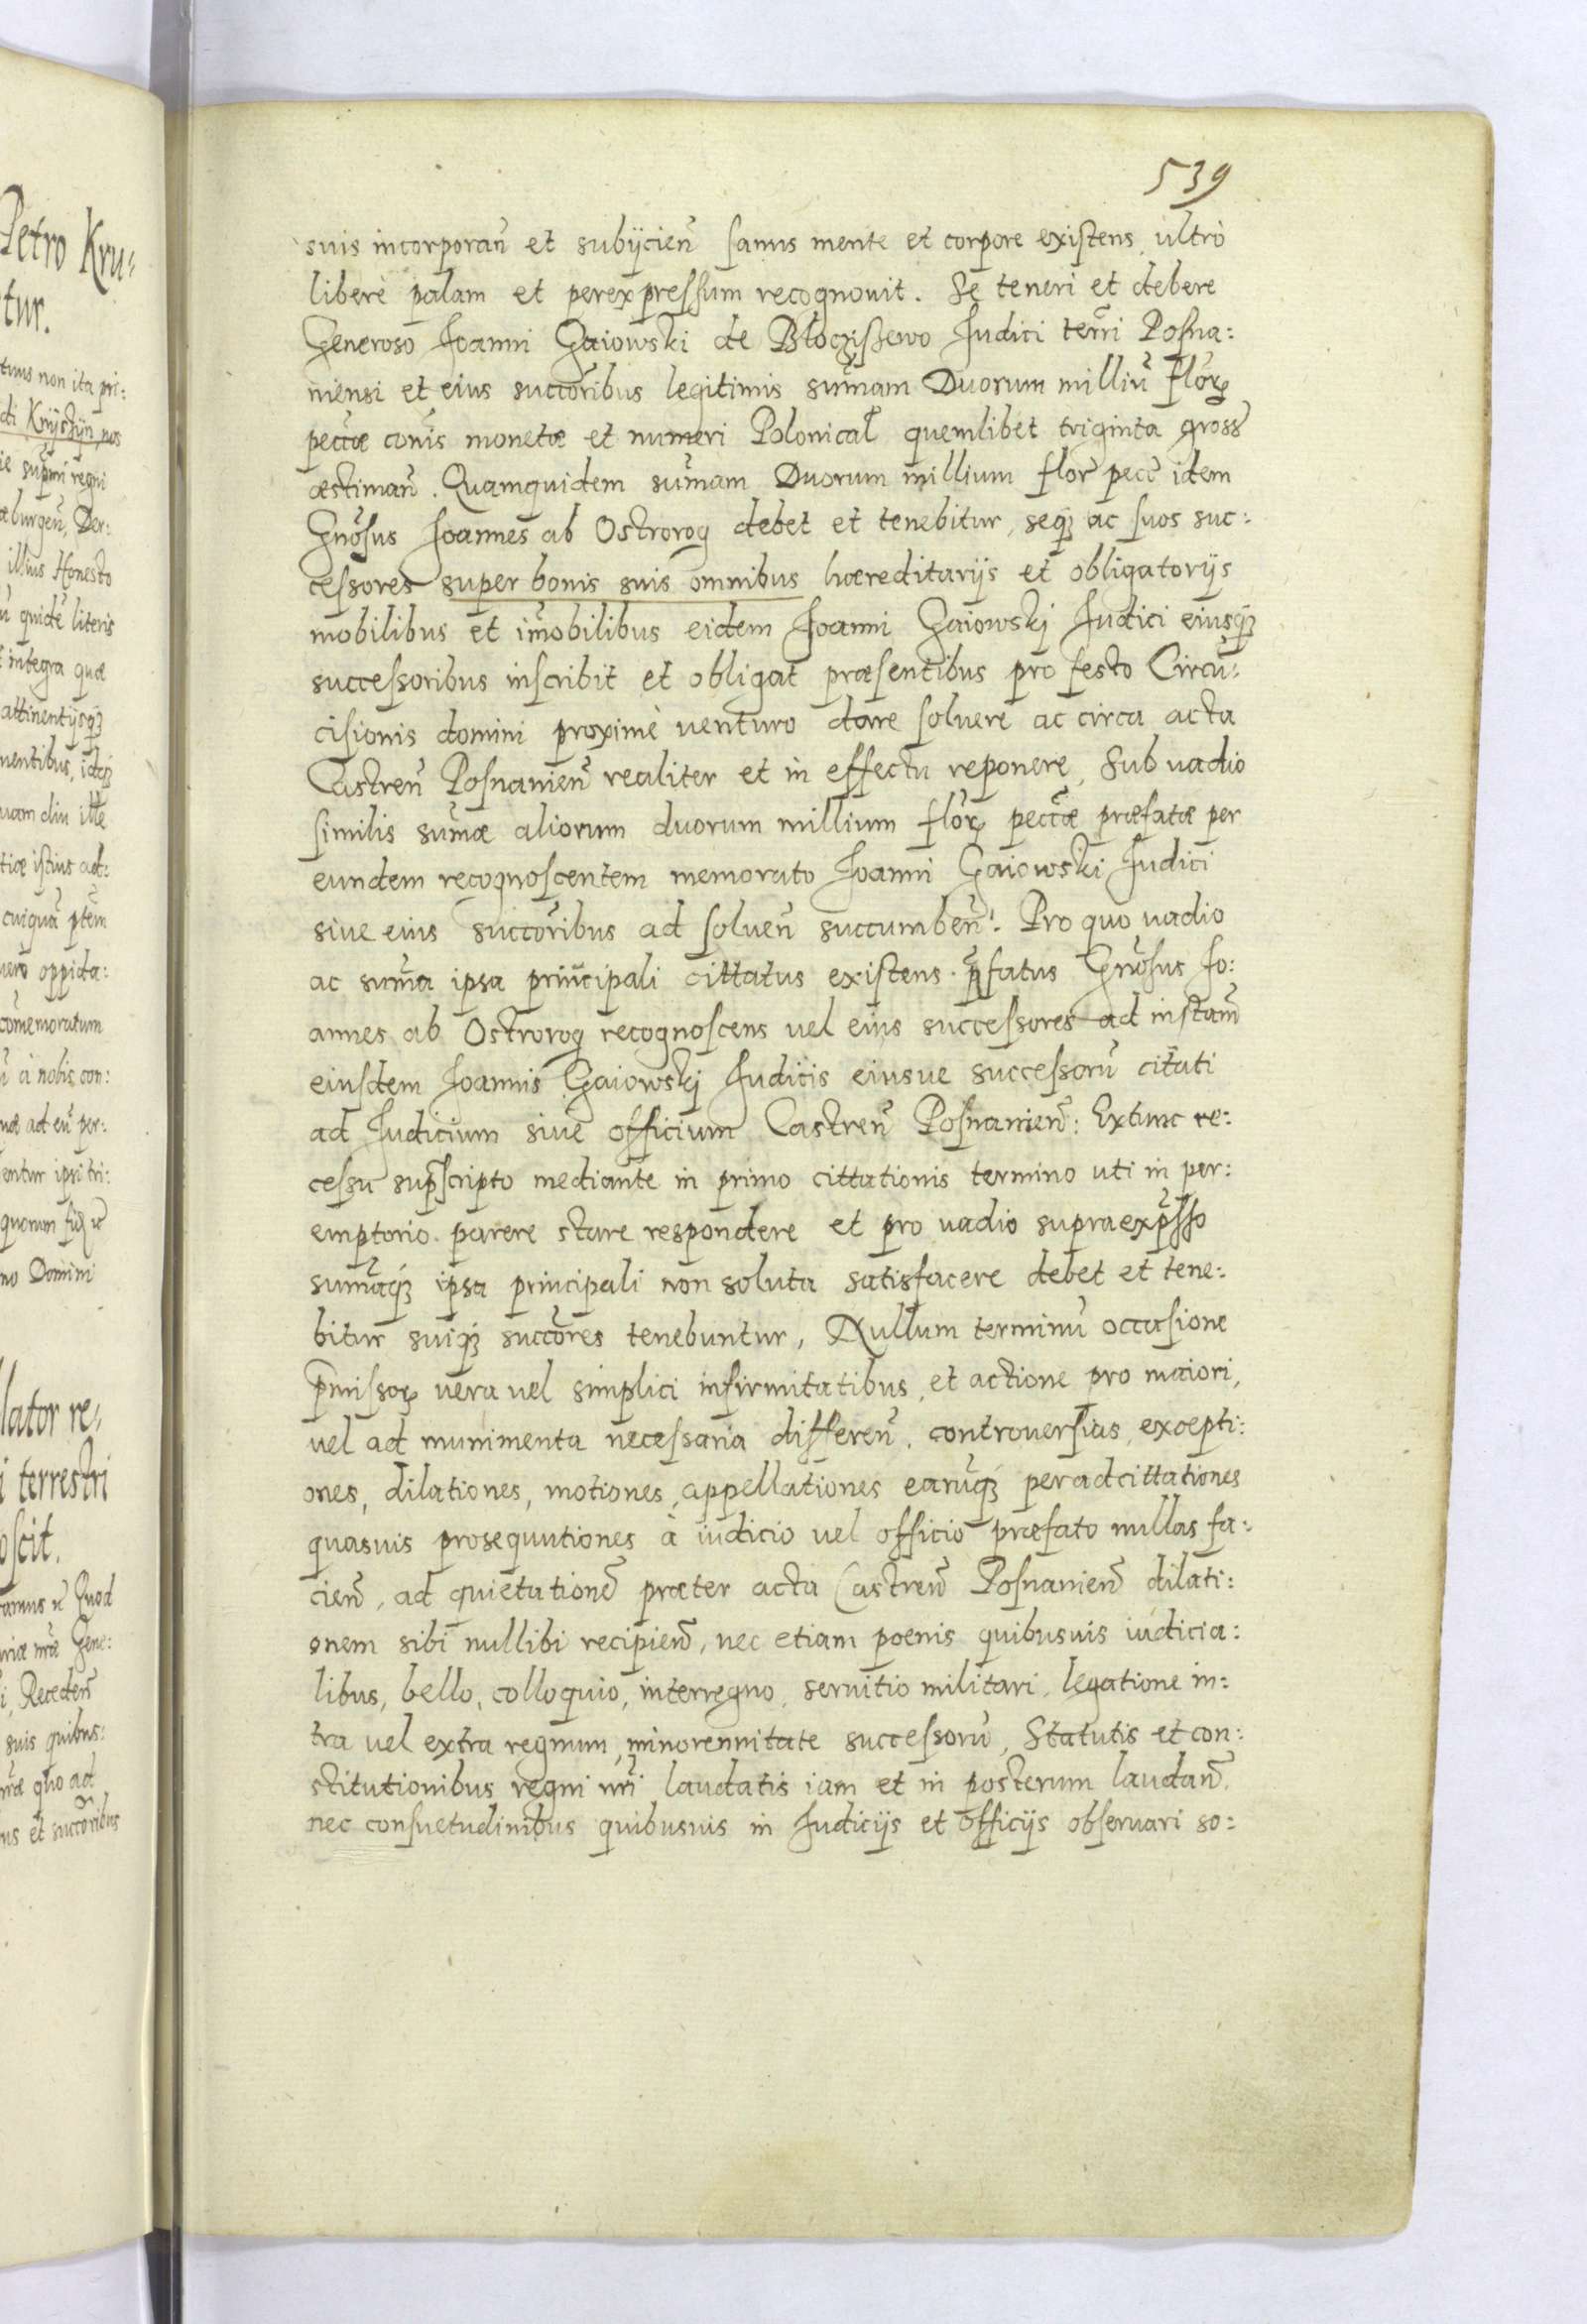 539
suis incorporan̄ et subijcien̄ sanus mente et corpore existens, ultrò
liberè palam et perexpressum recognouit. Se teneri et debere
Generoso Joanni Gaiowski de Bloczissewo Judici terr̄i Posna:
niensi et eius succōribus legitimis sum̄am Duorum milliū flōrꝝ
pecc̄æ cōnis monetæ et numeri Polonical̄ quemlibet triginta gross̄
æstiman̄. Quamquidem sum̄am Duorum millium flor̄ pecc̄ idem
Gnōsus Joannes ab Ostrorog debet et tenebitur, seqꝫ ac suos suc:
cessores super bonis suis omnibus hæreditarijs et obligatorijs
mobilibus et im̄obilibus eidem Joanni Gaiowskj Judici eiusqꝫ
successoribus inscribit et obligat præsentibus pro festo Circū:
cisionis domini proximè venturo dare soluere ac circa acta
Castren̄ Posnanien̄ realiter et in effectu reponere, Sub uadio
similis sum̄æ aliorum duorum millium flōrꝝ pecc̄æ præfatæ per
eundem recognoscentem memorato Joanni Gaiowski Judici
siue eius succōribus ad soluen̄ succumben̄. Pro quo uadio
ac sum̄a ipsa principali cittatus existens. p̄fatus Gnōsus Jo:
annes ab Ostrorog recognoscens uel eius successores ad instam̄
eiusdem Joannis Gaiowskj Judicis eiusue successorū citati
ad Judicium siue officium Castren̄ Posnanien̄: Extunc re:
cessu sup̄scripto mediante in primo cittationis termino uti in per:
emptorio. parere stare respondere et pro uadio supraexp̄sso
sum̄aqꝫ ipsa principali non soluta satisfacere debet et tene:
bitur suiqꝫ succōres tenebuntur, Nullum terminū occasione
p̄missorꝝ uera uel simplici infirmitatibus, et actione pro maiori,
uel ad munimenta necessaria differen̄. controuersias, excepti:
ones, dilationes, motiones, appellationes earūqꝫ per adcittationes
quasuis prosequutiones à iudicio uel officio præfato nullas fa:
cien̄, ad quietationē præter acta Castren̄ Posnanien̄ dilati:
onem sibi nullibi recipien̄, nec etiam poenis quibusuis iudicia:
libus, bello, colloquio, interregno, seruitio militari, legatione in:
tra uel extra regnum, minorennitate successorū, Statutis et con:
stitutionibus regni nr̄i laudatis iam et in posterum laudan̄.
nec consuetudinibus quibusuis in Judicijs et officijs obseruari so: